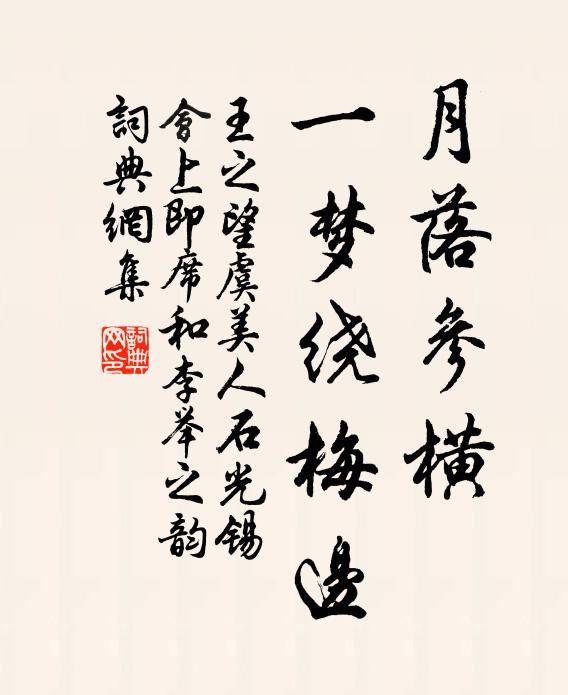 月落參橫
一梦绕梅邊
王之望虞美人石光锡
會上即席和李举之韵
詞典網集
詞典網印